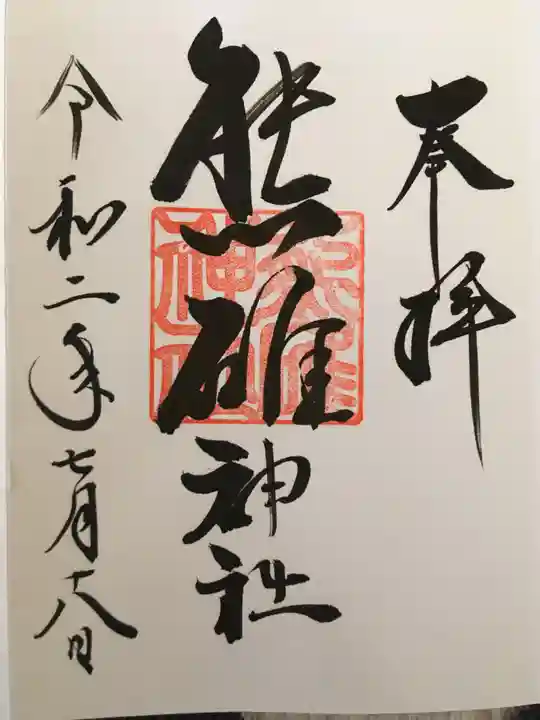 奉拝
熊碓神社
令和二年七月十八日